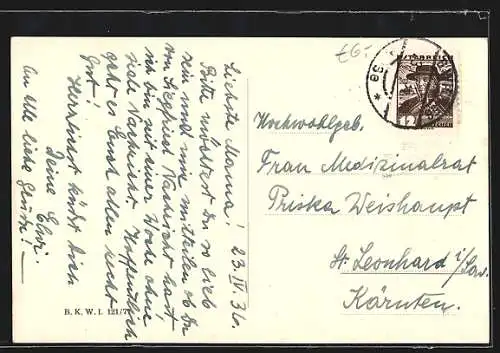 £6-
ÖSTERREICH
12
Hochwohlgeb.
Frau Medizinalrat
Priska Weishaupt
St. Leonhard i/Lav.
Kärnten.
23.IV.36.
Liebste Mama!
Bitte möchtest Du so lieb
sein und mir mitteilen ob Du
von Nachricht hast,
ich bin seit einer Woche ohne
Nachricht. Hoffentlich
geht es Euch allen recht
gut!
Herzlichst küsst Dich
Deine
An alle liebe Grüsse! —
B. K. W. I. 121/7